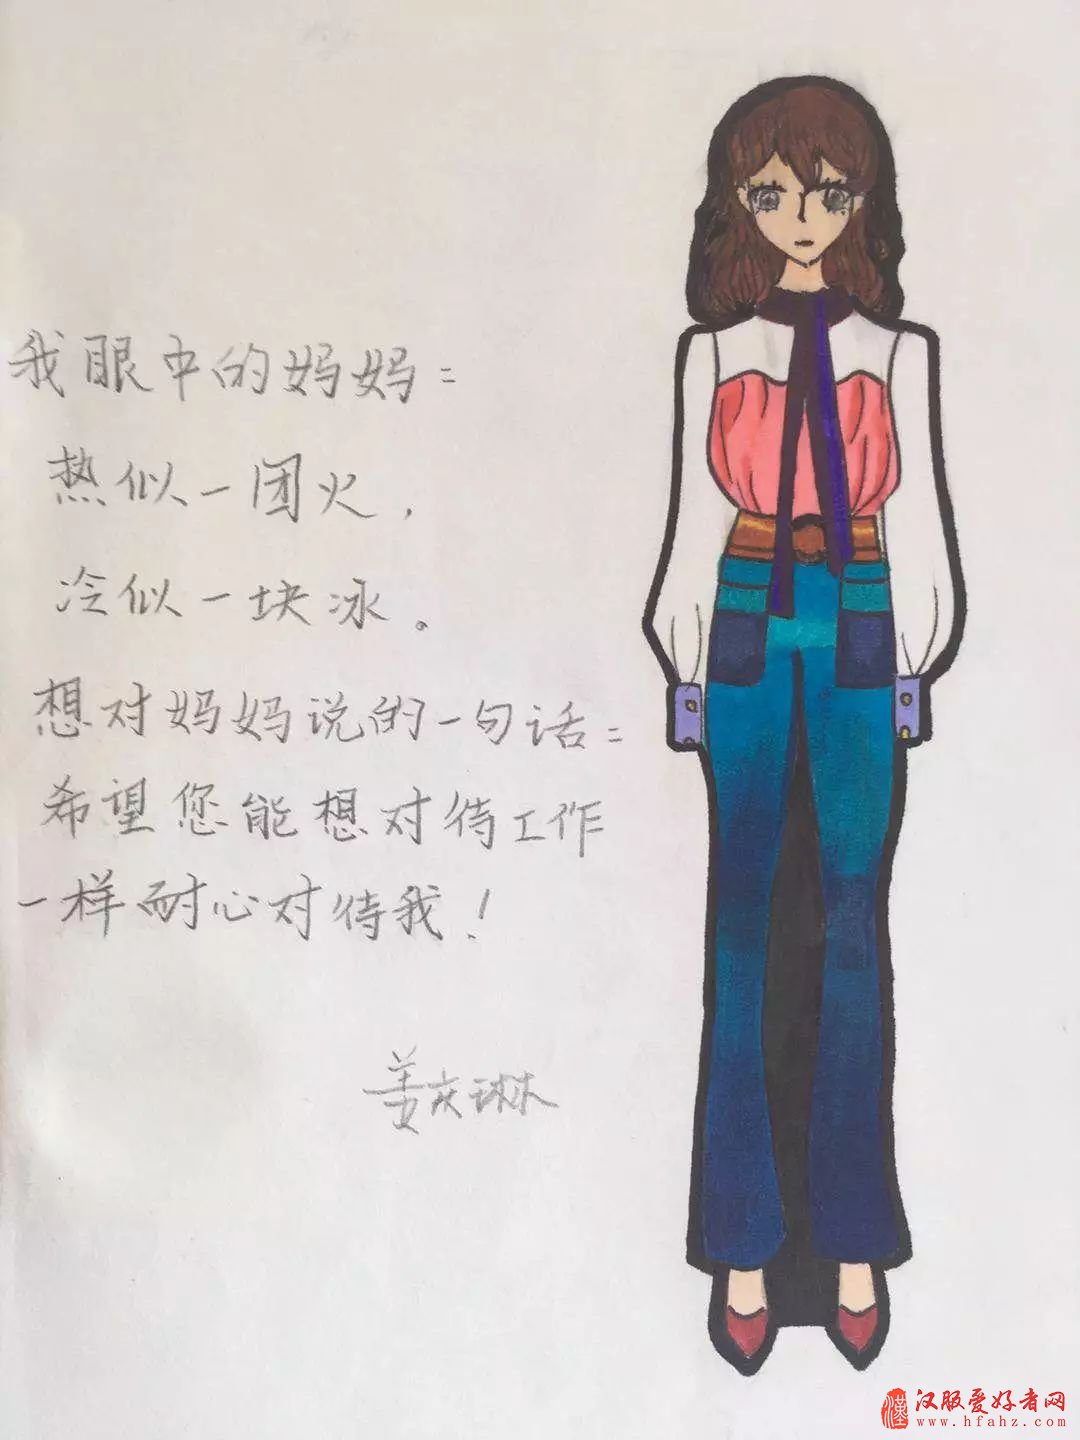 我眼中的妈妈：
热似一团火，
冷似一块冰。
想对妈妈说的一句话：
希望您能想对待工作
一样耐心对待我！
姜庆琳
汉服爱好者网
www.hfahz.com